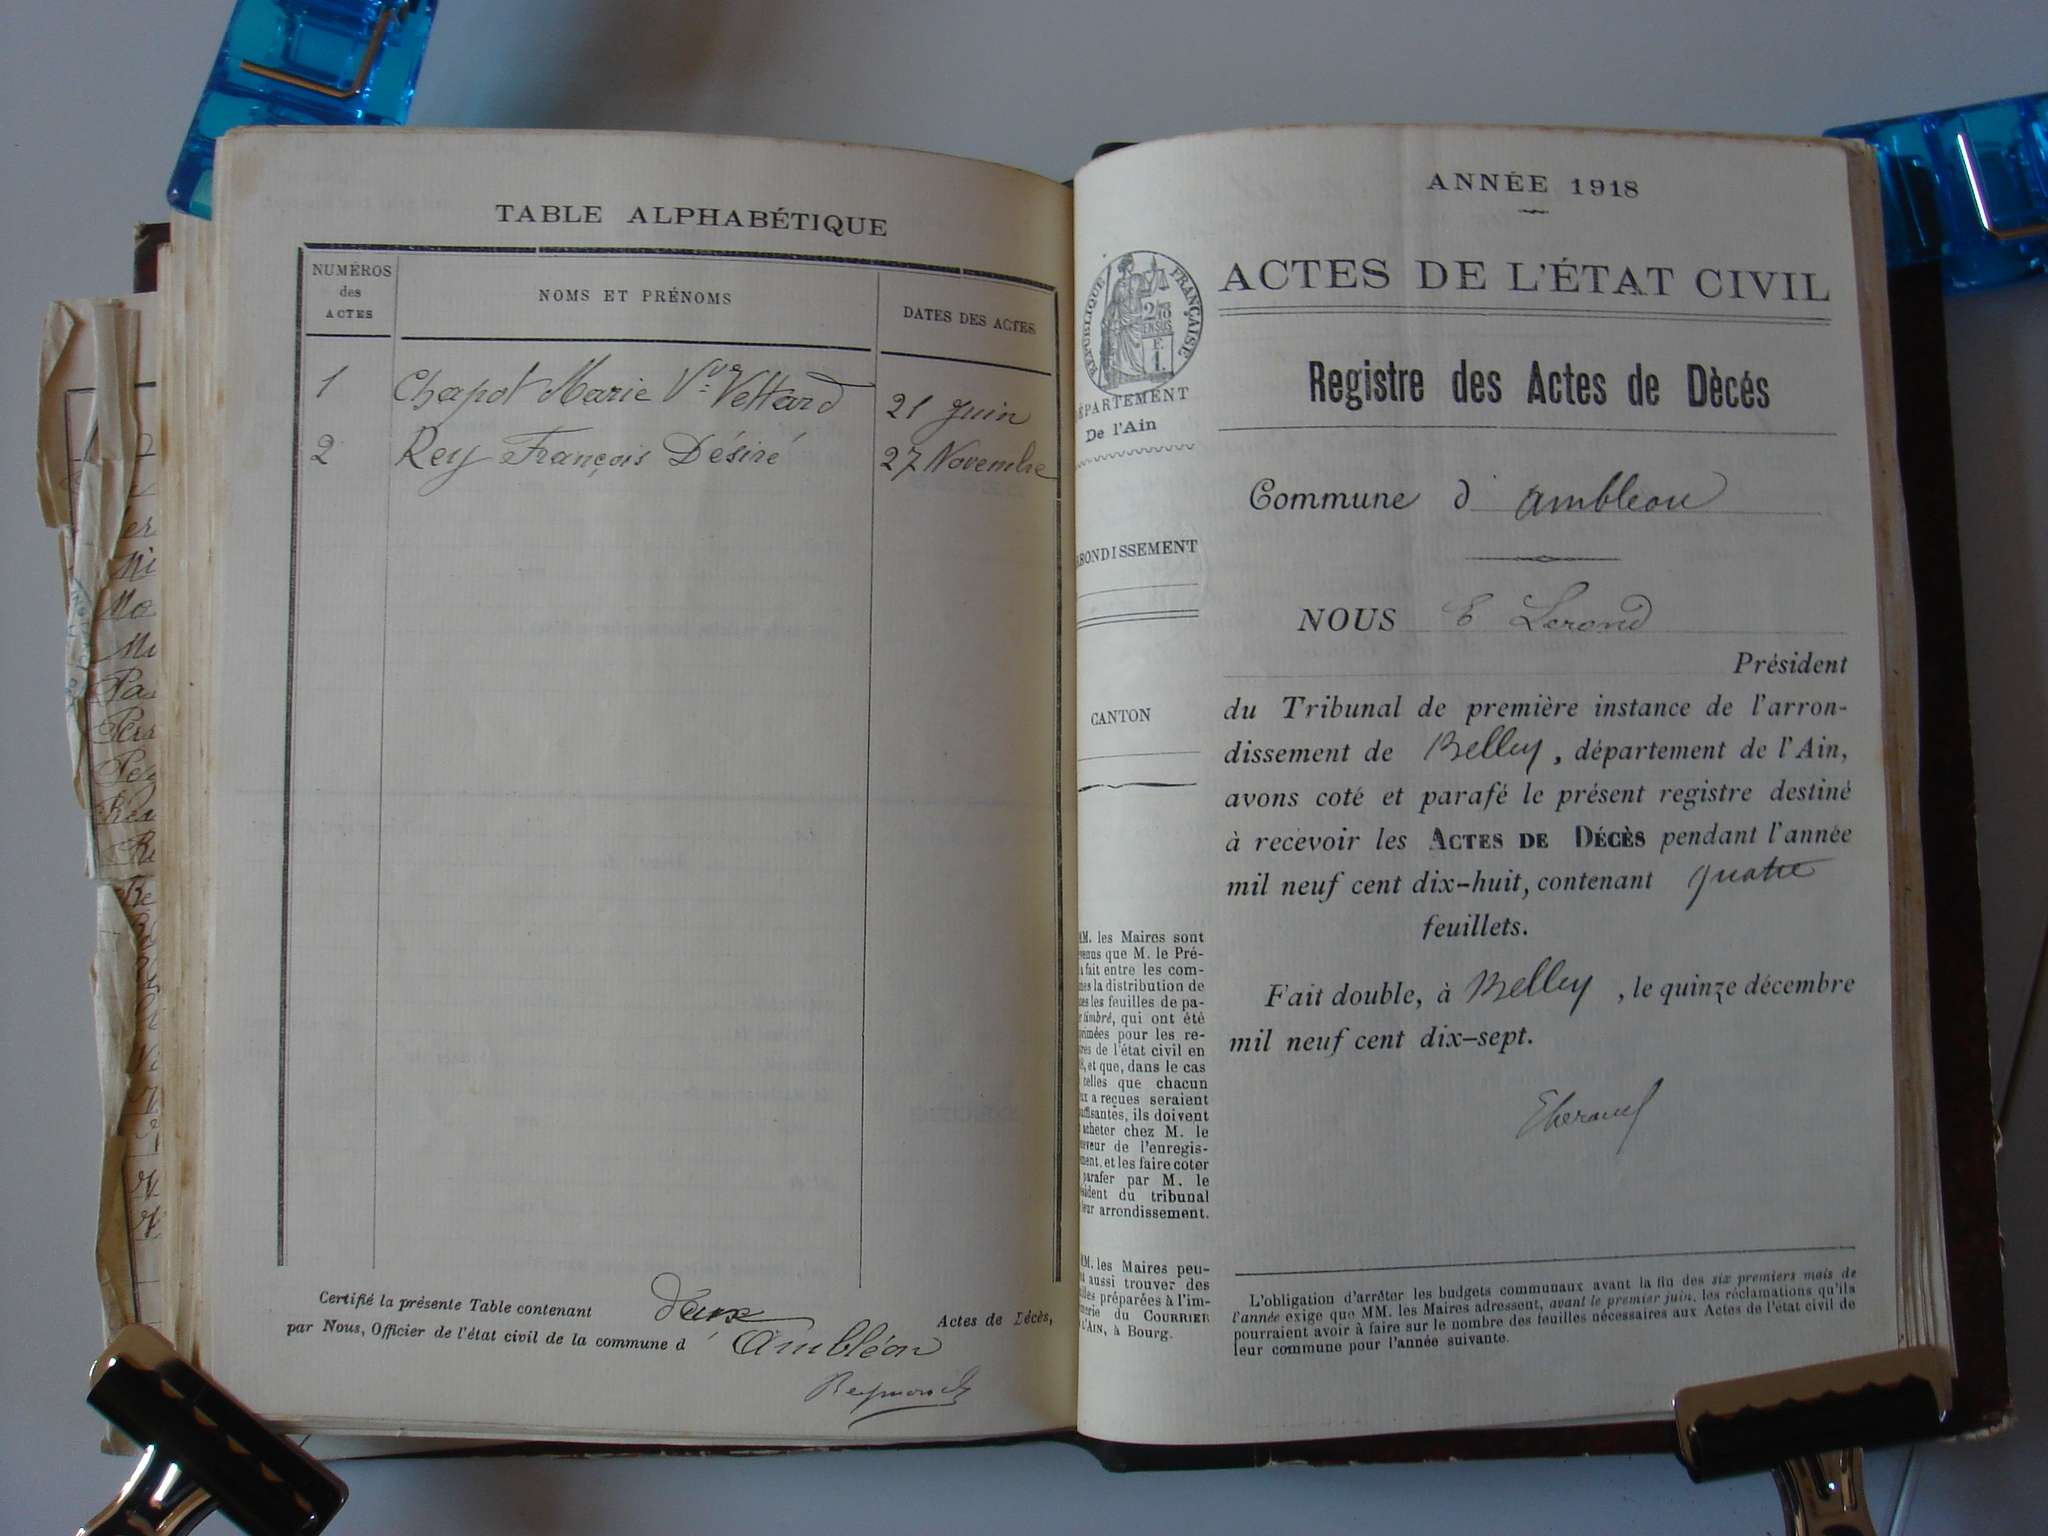 TABLE ALPHABÉTIQUE
NUMÉROS
des
ACTES
NOMS ET PRÉNOMS
DATES DES ACTES
1 Chapot Marie Vve Vettard 21 Juin
2 Rey François Désiré 27 Novembre
Certifié la présente Table contenant deux Actes de Décès,
par Nous, Officier de l'état civil de la commune d' Ambléon
Reymond
ANNÉE 1918
ACTES DE L'ÉTAT CIVIL
RÉPUBLIQUE FRANÇAISE
2/10
EN SUS
F.
1.
DÉPARTEMENT
De l'Ain
Registre des Actes de Dècés
Commune d' Ambleon
ARRONDISSEMENT
NOUS E Lerond
Président
CANTON
du Tribunal de première instance de l'arron-
dissement de Belley, département de l'Ain,
avons coté et parafé le présent registre destiné
à recevoir les ACTES DE DÉCÈS pendant l'année
mil neuf cent dix-huit, contenant quatre
feuillets.
Fait double, à Belley, le quinze décembre
mil neuf cent dix-sept.
MM. les Maires sont
que M. le Pré-
fait entre les com-
la distribution de
les feuilles de pa-
timbré, qui ont été
pour les re-
de l'état civil en
et que, dans le cas
celles que chacun
a reçues seraient
ils doivent
acheter chez M. le
de l'enregis-
et les faire coter
parafer par M. le
du tribunal
leur arrondissement.
MM. les Maires peu-
aussi trouver des
préparées à l'im-
du COURRIER
L'AIN, à Bourg.
L'obligation d'arrêter les budgets communaux avant la fin des six premiers mois de
l'année exige que MM. les Maires adressent, avant le premier juin, les réclamations qu'ils
pourraient avoir à faire sur le nombre des feuilles nécessaires aux Actes de l'état civil de
leur commune pour l'année suivante.